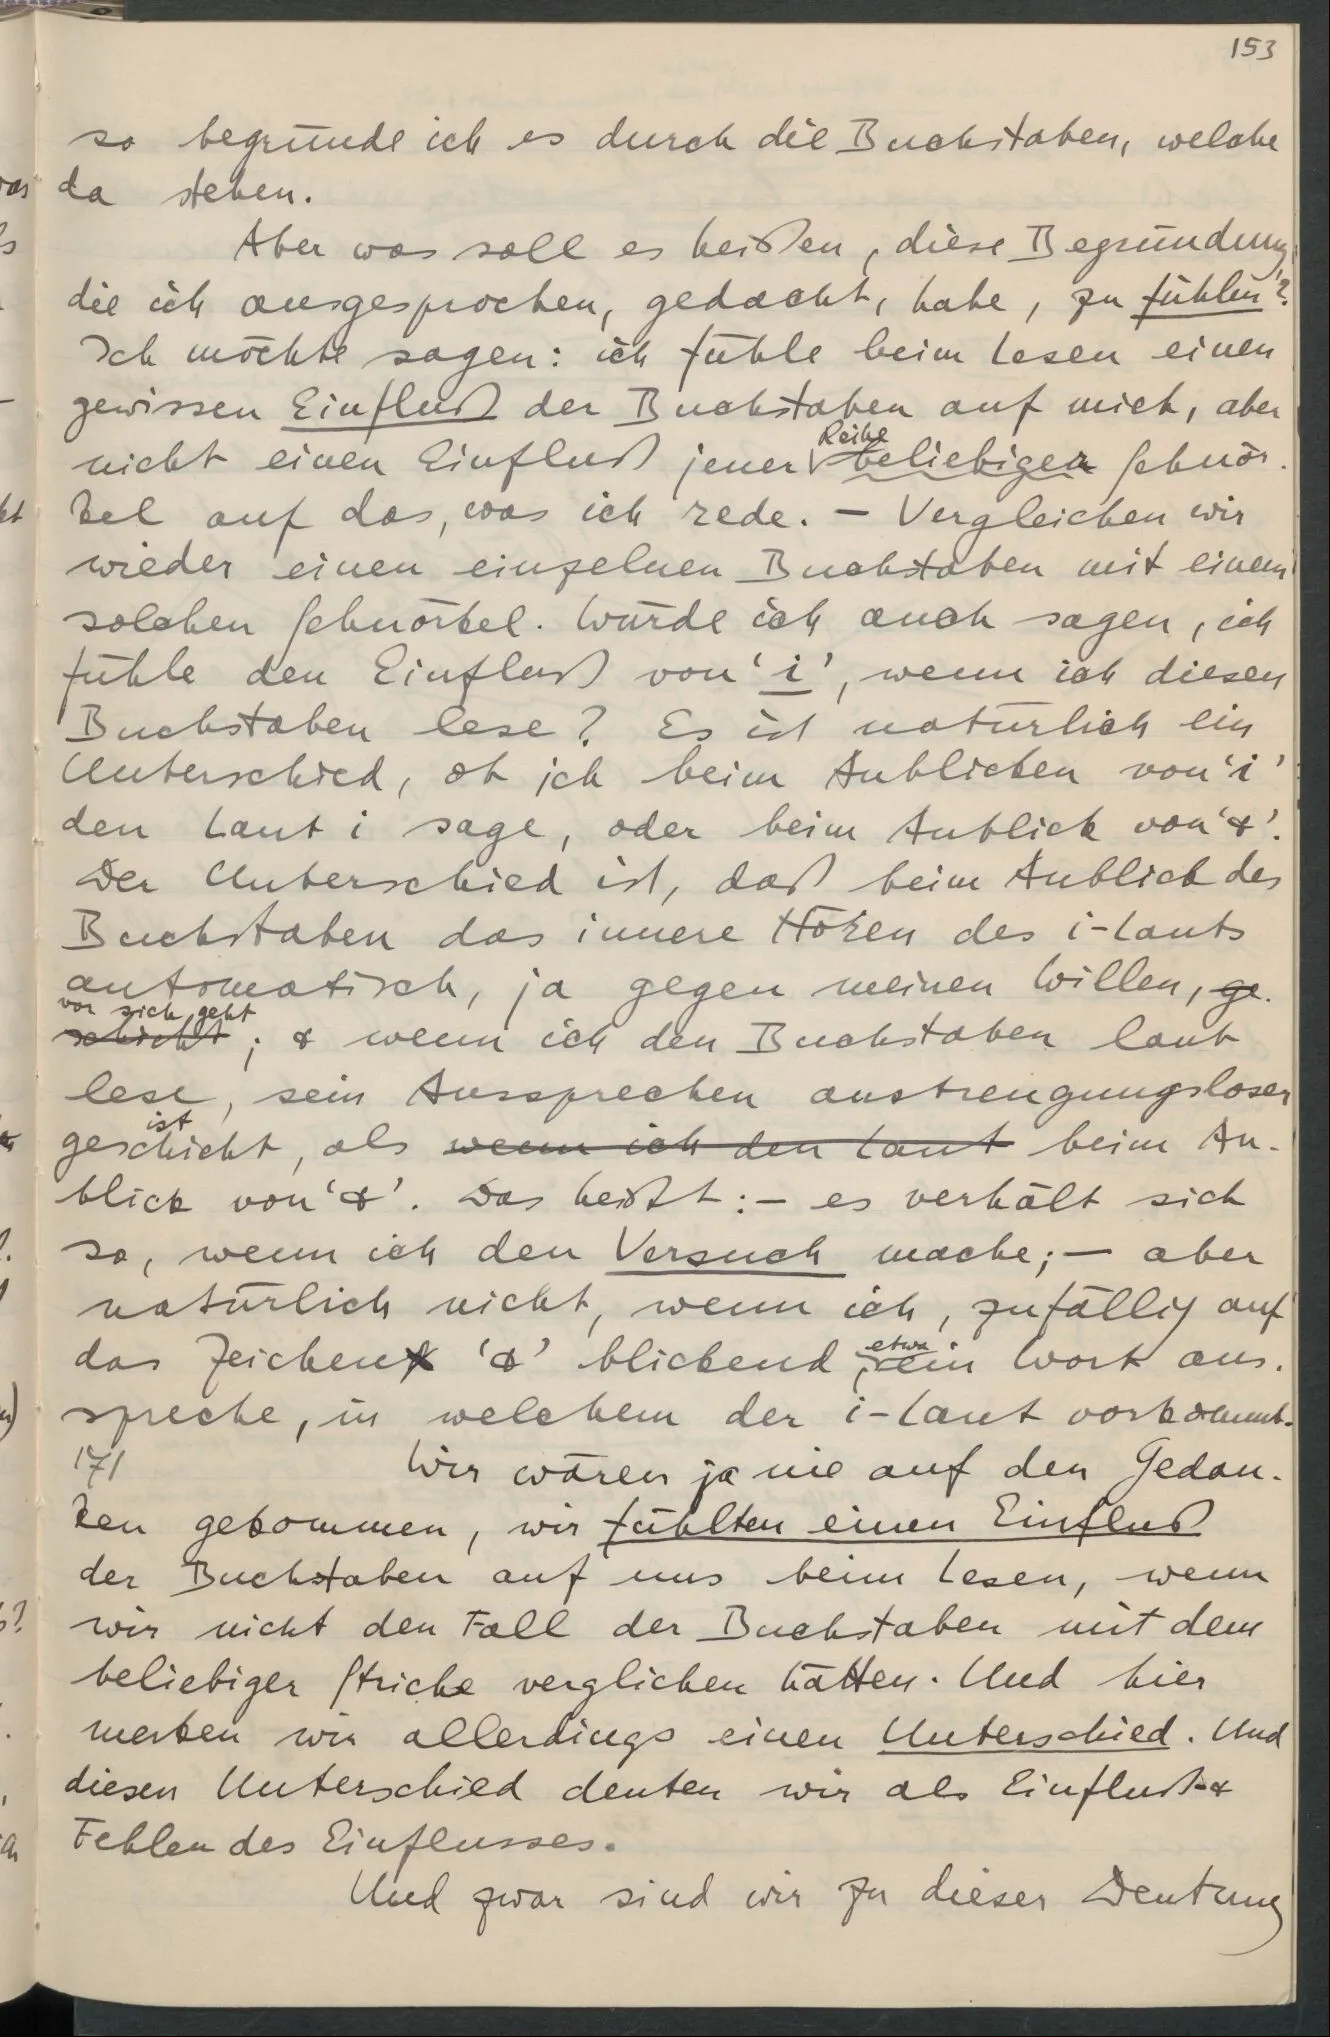 153
so begründe ich es durch die Buchstaben, welche
da stehen.
Aber was soll es heißen, diese Begründung,
die ich ausgesprochen, gedacht, habe, zu fühlen?
Ich möchte sagen: ich fühle beim Lesen einen
gewissen Einfluß der Buchstaben auf mich, aber
Reihe
nicht einen Einfluß jener beliebiger Schnör-
kel auf das, was ich rede. – Vergleichen wir
wieder einen einzelnen Buchstaben mit einem
solchen Schnörkel. Würde ich auch sagen, ich
fühle den Einfluß von ‘i’, wenn ich diesen
Buchstaben lese? Es ist natürlich ein
Unterschied, ob ich beim Anblicken von ‘i’
den Laut i sage, oder beim Anblick von ‘&’.
Der Unterschied ist, daß beim Anblick des
Buchstaben das innere Hören des i-Lauts
automatisch, ja gegen meinen Willen, ge-
vor sich geht
schieht; & wenn ich den Buchstaben laut
lese, sein Aussprechen anstrengungsloser
ist
geschieht, als wenn ich den Laut beim An-
blick von ‘&’. Das heißt: – es verhält sich
so, wenn ich den Versuch mache; – aber
natürlich nicht, wenn ich, zufällig auf
etwa
das Zeichen ‘&’ blickend, ein Wort aus-
spreche, in welchem der i-Laut vorkommt.
171 Wir wären ja nie auf den Gedan-
ken gekommen, wir fühlten einen Einfluß
der Buchstaben auf uns beim Lesen, wenn
wir nicht den Fall der Buchstaben mit dem
beliebiger Striche verglichen hätten. Und hier
merken wir allerdings einen Unterschied. Und
diesen Unterschied deuten wir als Einfluß &
Fehlen des Einflusses.
Und zwar sind wir zu dieser Deutung